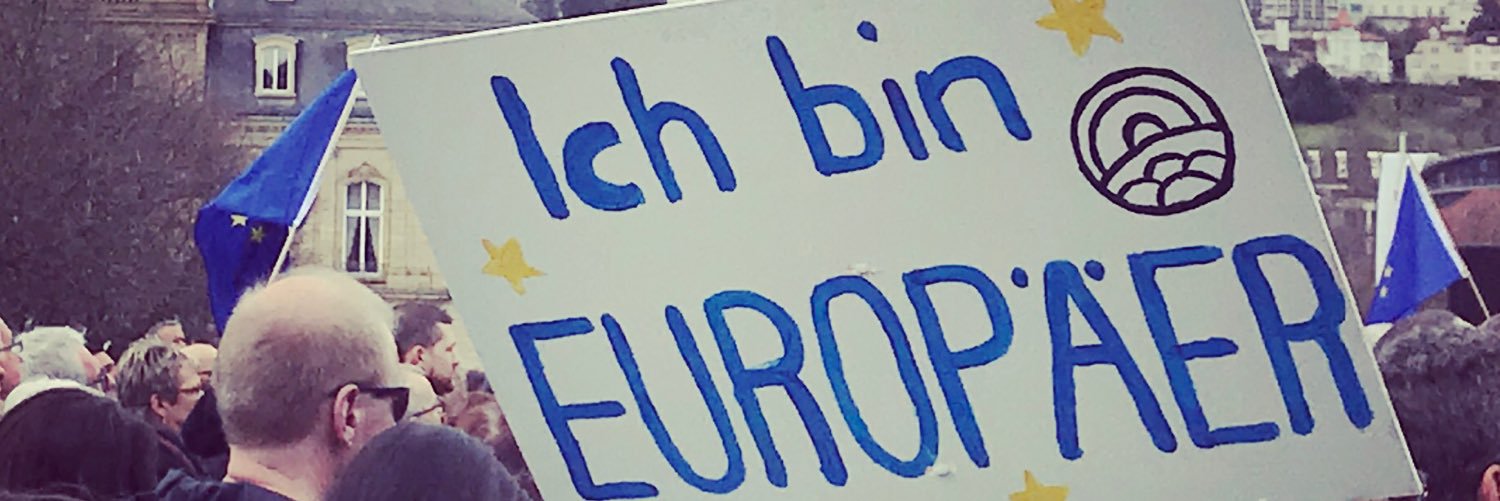 Ich bin
EUROPÄER